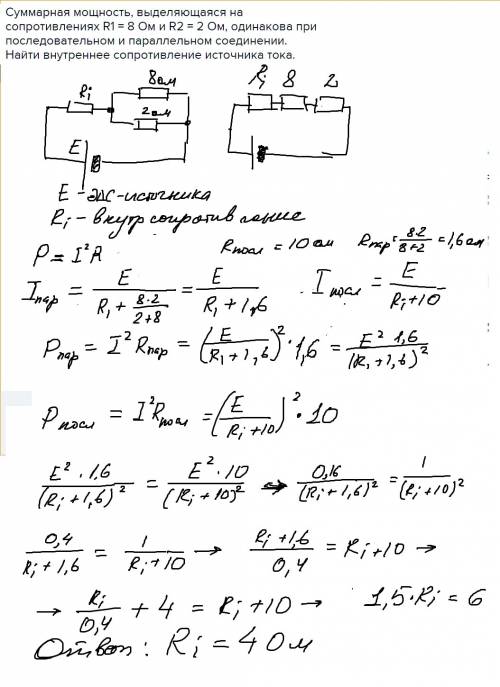 Суммарная мощность, выделяющаяся на
сопротивлениях R1 = 8 Ом и R2 = 2 Ом, одинакова при
последовательном и параллельном соединении.
Найти внутреннее сопротивление источника тока.
Ri 8ом 2ом E
Ri 8 2
E - эдс-источника
Ri - внутр сопротивление
P = I²R Rпосл = 10 ом Rпар = 8·2/(8+2) = 1,6 ом
Iпар = E/(R1 + 8·2/(2+8)) = E/(R1 + 1,6) Iпосл = E/(Ri + 10)
Pпар = I² Rпар = (E/(R1 + 1,6))² · 1,6 = E² 1,6/(R1 + 1,6)²
Pпосл = I² Rпосл = (E/(Ri + 10))² · 10
E² · 1,6/(Ri + 1,6)² = E² · 10/(Ri + 10)² → 0,16/(Ri + 1,6)² = 1/(Ri + 10)²
0,4/(Ri + 1,6) = 1/(Ri + 10) → (Ri + 1,6)/0,4 = Ri + 10 →
→ Ri/0,4 + 4 = Ri + 10 → 1,5·Ri = 6
Ответ: Ri = 4 Ом